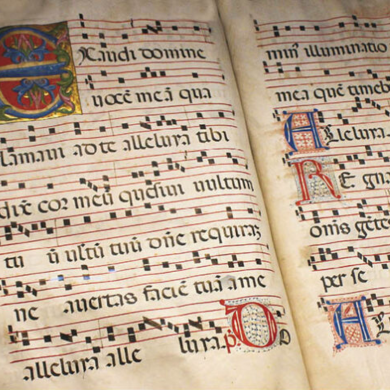 Exaudi domine
vocē meā qua
lamaui ad te alleluya tibi
cor meū quesiui uultum
tu ū ultū tuū dñe requirā
ne auertas faciē tuā a me
alleluya alle luya
illuminatio
mea quē timeb
Alleluya
Regna
per se